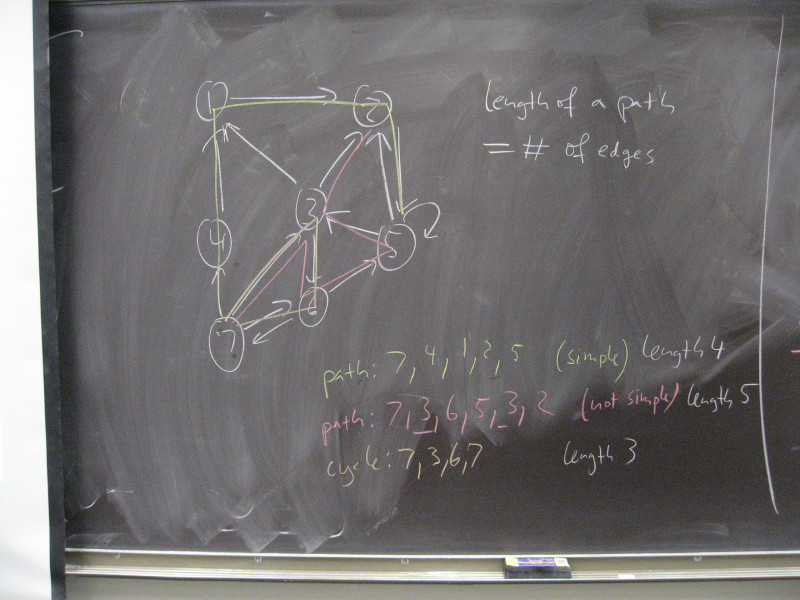 1
2
length of a path
= # of edges
3
4
5
6
7
path: 7, 4, 1, 2, 5 (simple) length 4
path: 7, 3, 6, 5, 3, 2 (not simple) length 5
cycle: 7, 3, 6, 7 length 3